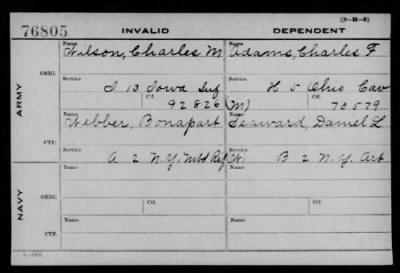 76805 INVALID DEPENDENT (3-H-5)
Name Wilson, Charles M Name Adams, Charles F
ARMY
ORIG.
Service I 13 Iowa Inf Service H 5 Ohio Cav
Ctf. 92826 (M) Ctf. 73579
Name Webber, Bonapart Name Seaward, Daniel L
CTF.
Service A 2 N.Y. Mtd Rif Service W. B 2 N.Y. Art
NAVY
Name Name
ORIG.
Service Ctf. Service Ctf.
Name Name
CTF.
Service Service